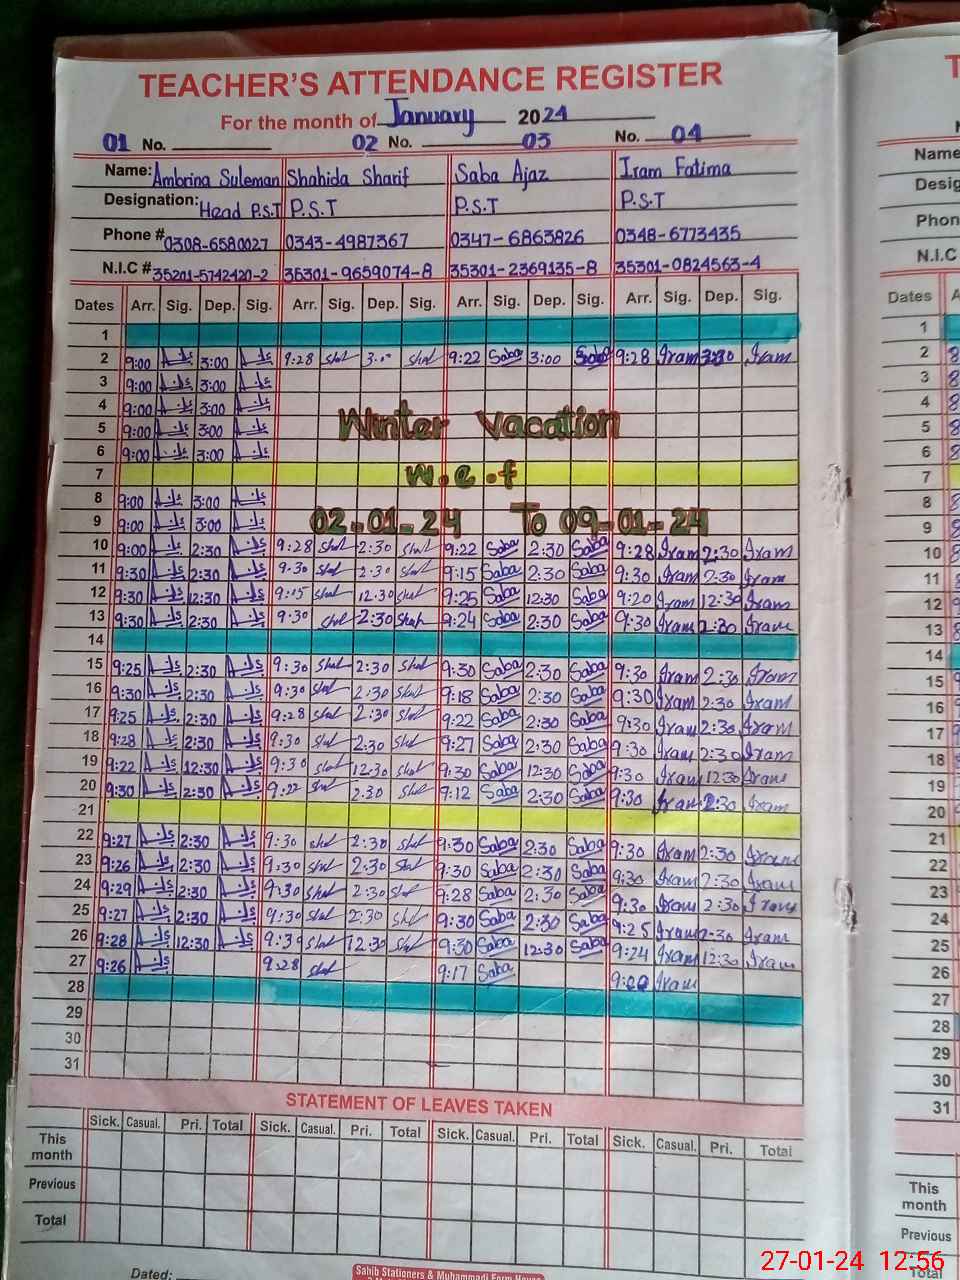 TEACHER'S ATTENDANCE REGISTER
For the month of January 2024
01 No. 02 No. 03 No. 04
Name: Ambrina Suleman Shahida Sharif Saba Ajaz Iram Fatima
Designation: Head P.S.T P.S.T P.S.T P.S.T
Phone # 0308-6580027 0343-4987367 0347-6863826 0348-6773435
N.I.C # 35201-5742420-2 35301-9659074-8 35301-2369135-8 35301-0824563-4
Dates Arr. Sig. Dep. Sig. Arr. Sig. Dep. Sig. Arr. Sig. Dep. Sig. Arr. Sig. Dep. Sig.
1
2 9:00 3:00 9:28 3:00 9:22 Saba 3:00 Saba 9:28 Iram Iram
3 9:00 3:00
4 9:00 3:00
Winter Vacation
5 9:00 3:00
6 9:00 3:00
7 w.e.f
8 9:00 3:00
9 9:00 3:00 02-01-24 To 09-01-24
10 9:00 2:30 9:28 2:30 9:22 Saba 2:30 Saba 9:28 Iram 2:30 Iram
11 9:30 2:30 9:30 2:30 9:15 Saba 2:30 Saba 9:30 Iram 2:30 Iram
12 9:30 12:30 9:15 12:30 9:25 Saba 12:30 Saba 9:20 Iram 12:30 Iram
13 9:30 2:30 9:30 2:30 9:24 Saba 2:30 Saba 9:30 Iram 2:30 Iram
14
15 9:25 2:30 9:30 2:30 9:30 Saba 2:30 Saba 9:30 Iram 2:30 Iram
16 9:30 2:30 9:30 2:30 9:18 Saba 2:30 Saba 9:30 Iram 2:30 Iram
17 9:25 2:30 9:28 2:30 9:22 Saba 2:30 Saba 9:30 Iram 2:30 Iram
18 9:28 2:30 9:30 2:30 9:27 Saba 2:30 Saba 9:30 Iram 2:30 Iram
19 9:22 12:30 9:30 12:30 9:30 Saba 12:30 Saba 9:30 Iram 12:30 Iram
20 9:30 2:30 9:22 2:30 9:12 Saba 2:30 Saba 9:30 Iram 2:30 Iram
21
22 9:27 2:30 9:30 2:30 9:30 Saba 2:30 Saba 9:30 Iram 2:30 Iram
23 9:26 2:30 9:30 2:30 9:30 Saba 2:30 Saba 9:30 Iram 2:30 Iram
24 9:29 2:30 9:30 2:30 9:28 Saba 2:30 Saba 9:30 Iram 2:30 Iram
25 9:27 2:30 9:30 2:30 9:30 Saba 2:30 Saba 9:25 Iram 2:30 Iram
26 9:28 12:30 12:30 9:30 Saba 12:30 Saba 9:24 Iram 12:30 Iram
27 9:26 9:28 9:17 Saba Iram
28
29
30
31
STATEMENT OF LEAVES TAKEN
Sick. Casual. Pri. Total Sick. Casual. Pri. Total Sick. Casual. Pri. Total Sick. Casual. Pri. Total
This month
Previous
Total
Dated:
Sahib Stationers & Muhammadi Form House
Name
Phon
N.I.C
Dates
1
2
3
4
5
6
7
8
9
10
11
12
13
14
15
16
17
18
19
20
21
22
23
24
25
26
27
28
29
30
31
This month
Previous
Total
27-01-24 12:56